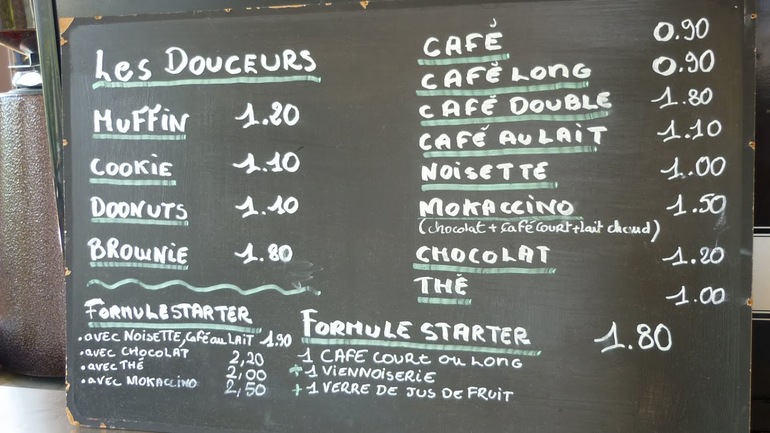 Les DOUCEURS
MUFFIN 1.20
COOKIE 1.10
DOONUTS 1.10
BROWNIE 1.80
FORMULE STARTER
.AVEC NOISETTE, Café au LAIT 1.90
.AVEC CHOCOLAT 2,20
.AVEC THÉ 2,00
.AVEC MOKACCINO 2,50
CAFÉ 0.90
CAFÉ LONG 0.90
CAFÉ DOUBLE 1.80
CAFÉ AU LAIT 1.10
NOISETTE 1.00
MOKACCINO 1.50
(chocolat + café court + lait chaud)
CHOCOLAT 1.20
THÉ 1.00
FORMULE STARTER 1.80
1 CAFE COURT OU LONG
+ 1 VIENNOISERIE
+ 1 VERRE DE JUS DE FRUIT